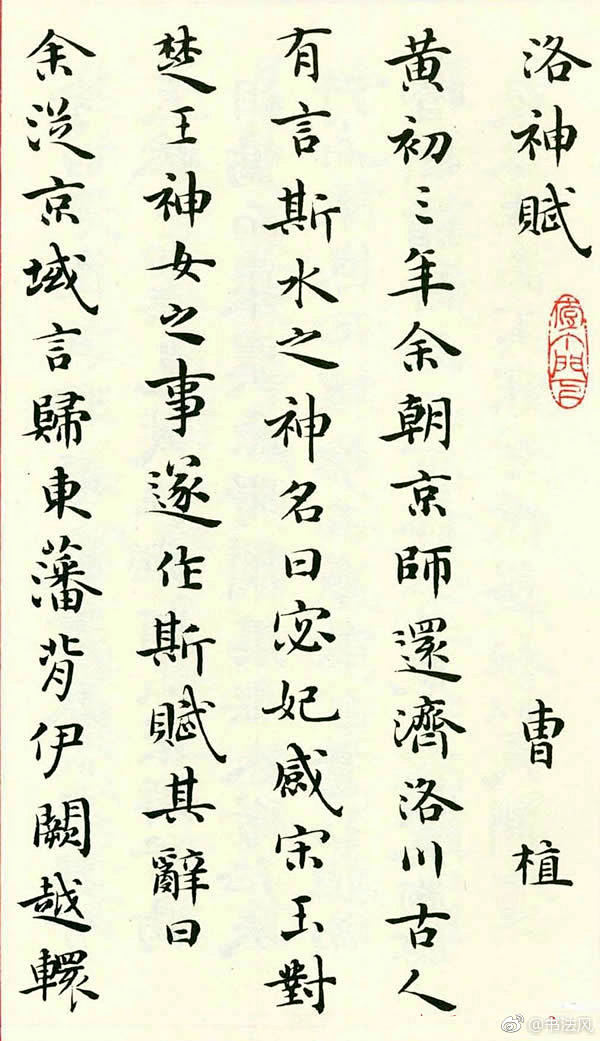 洛神賦 曹植
黃初三年余朝京師還濟洛川古人
有言斯水之神名曰宓妃感宋玉對
楚王神女之事遂作斯賦其辭曰
余從京域言歸東藩背伊闕越轘
@书法风